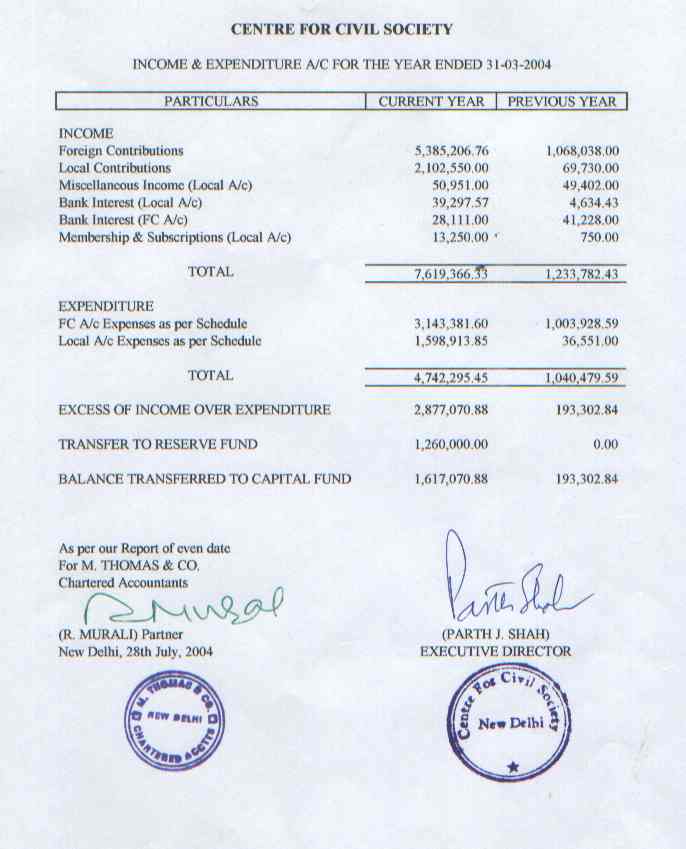 CENTRE FOR CIVIL SOCIETY
INCOME & EXPENDITURE A/C FOR THE YEAR ENDED 31-03-2004
PARTICULARS CURRENT YEAR PREVIOUS YEAR
INCOME
Foreign Contributions 5,385,206.76 1,068,038.00
Local Contributions 2,102,550.00 69,730.00
Miscellaneous Income (Local A/c) 50,951.00 49,402.00
Bank Interest (Local A/c) 39,297.57 4,634.43
Bank Interest (FC A/c) 28,111.00 41,228.00
Membership & Subscriptions (Local A/c) 13,250.00 750.00
TOTAL 7,619,366.33 1,233,782.43
EXPENDITURE
FC A/c Expenses as per Schedule 3,143,381.60 1,003,928.59
Local A/c Expenses as per Schedule 1,598,913.85 36,551.00
TOTAL 4,742,295.45 1,040,479.59
EXCESS OF INCOME OVER EXPENDITURE 2,877,070.88 193,302.84
TRANSFER TO RESERVE FUND 1,260,000.00 0.00
BALANCE TRANSFERRED TO CAPITAL FUND 1,617,070.88 193,302.84
As per our Report of even date
For M. THOMAS & CO.
Chartered Accountants
RMurali Parth Shah
(R. MURALI) Partner (PARTH J. SHAH)
New Delhi, 28th July, 2004 EXECUTIVE DIRECTOR
M. THOMAS & CO.
NEW DELHI
CHARTERED ACCTTS
Centre For Civil Society
New Delhi